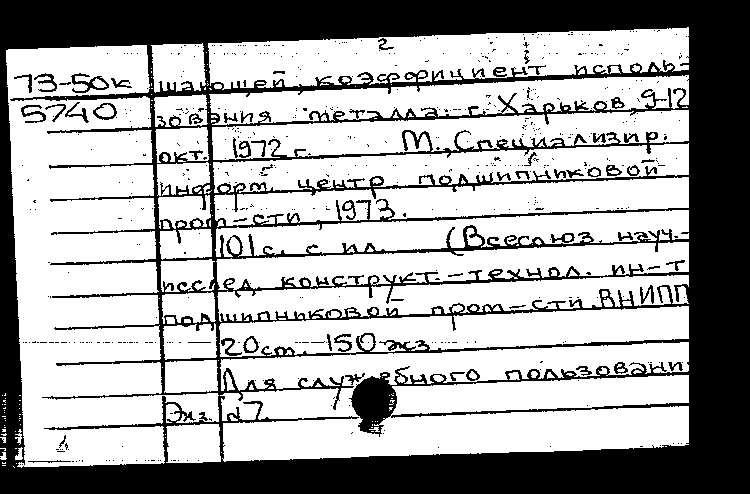 2
73-50к шающей, коэффициент исполь-
5740 зования металла. г. Харьков, 9-12
окт. 1972 г. М., Специализир.
информ. центр подшипниковой
пром-сти, 1973.
101 с. с ил. (Всесоюз. науч.-
исслед. конструкт.-технол. ин-т
подшипниковой пром-сти. ВНИПП
20 ст. 150 экз.
Для служебного пользовани
Экз. №7.